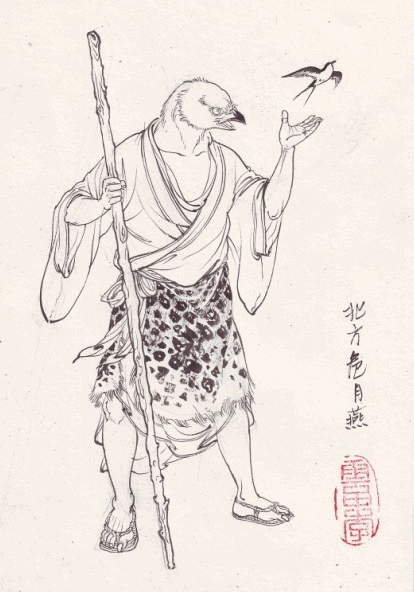 北方危月燕